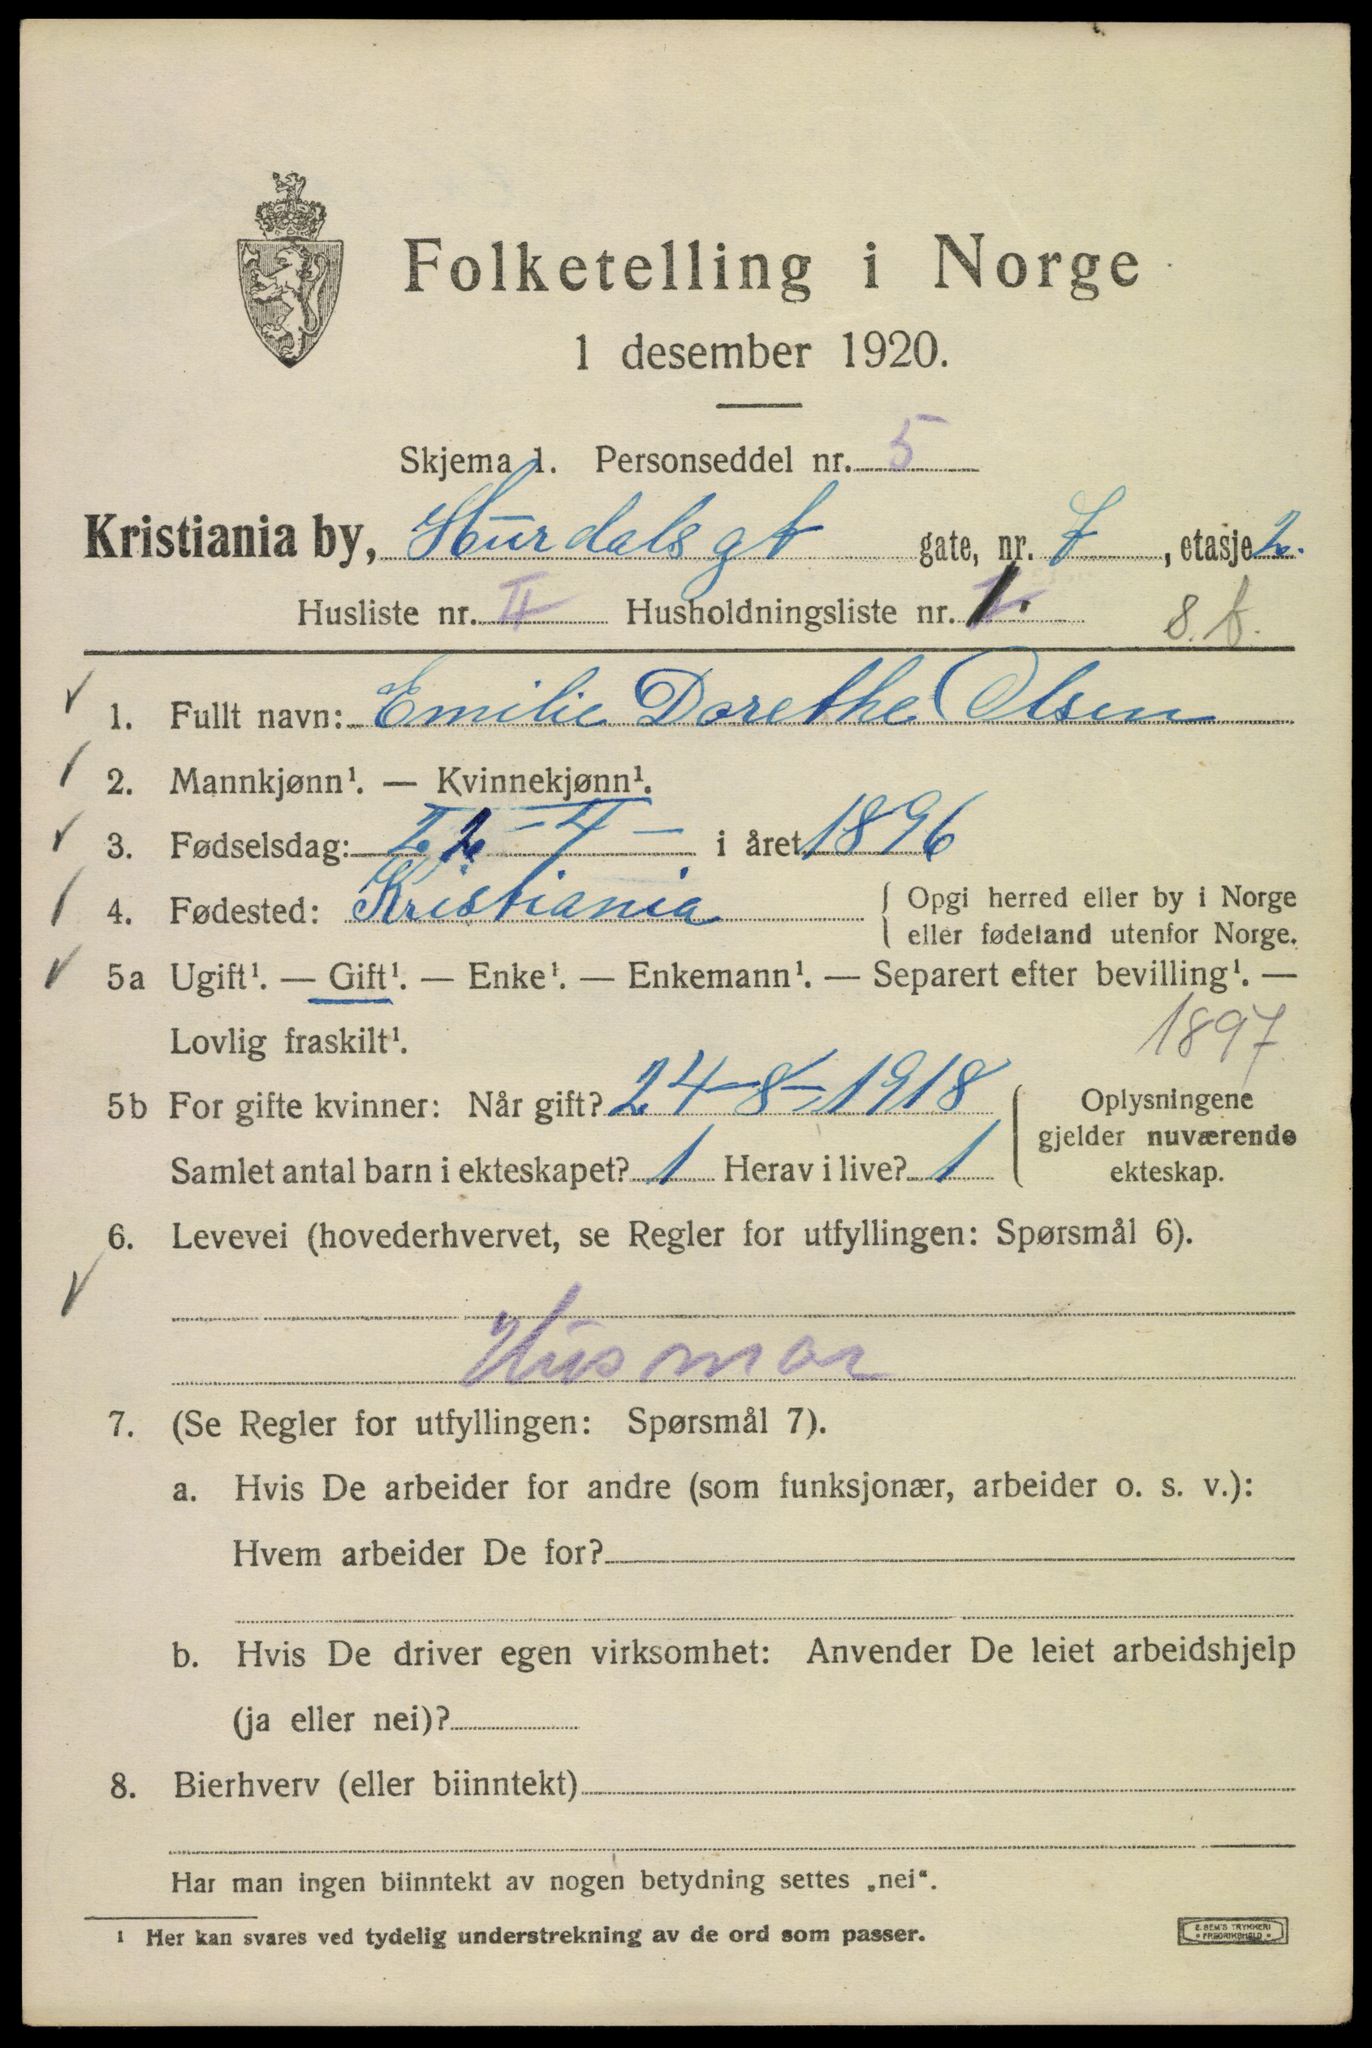 Folketelling i Norge
1 desember 1920.
Skjema 1. Personseddel nr. 5
Kristiania by, Hurdalsgt gate, nr. 7, etasje 2.
Husliste nr. II Husholdningsliste nr. 1. 8. b.
1. Fullt navn: Emilie Dorethe Olsen
2. Mannkjønn¹. — Kvinnekjønn¹.
3. Fødselsdag: 22 - 4 - i året 1896
4. Fødested: Kristiania { Opgi herred eller by i Norge
eller fødeland utenfor Norge.
5a Ugift¹. — Gift¹. — Enke¹. — Enkemann¹. — Separert efter bevilling¹. —
Lovlig fraskilt¹. 1897
5b For gifte kvinner: Når gift? 24-8-1918 { Oplysningene
gjelder nuværende
Samlet antal barn i ekteskapet? 1 Herav i live? 1 ekteskap.
6. Levevei (hovederhvervet, se Regler for utfyllingen: Spørsmål 6).
Husmor
7. (Se Regler for utfyllingen: Spørsmål 7).
a. Hvis De arbeider for andre (som funksjonær, arbeider o. s. v.):
Hvem arbeider De for?
b. Hvis De driver egen virksomhet: Anvender De leiet arbeidshjelp
(ja eller nei)?
8. Bierhverv (eller biinntekt)
Har man ingen biinntekt av nogen betydning settes „nei“.
¹ Her kan svares ved tydelig understrekning av de ord som passer.
E. SEM'S TRYKKERI
• FREDRIKSHALD •